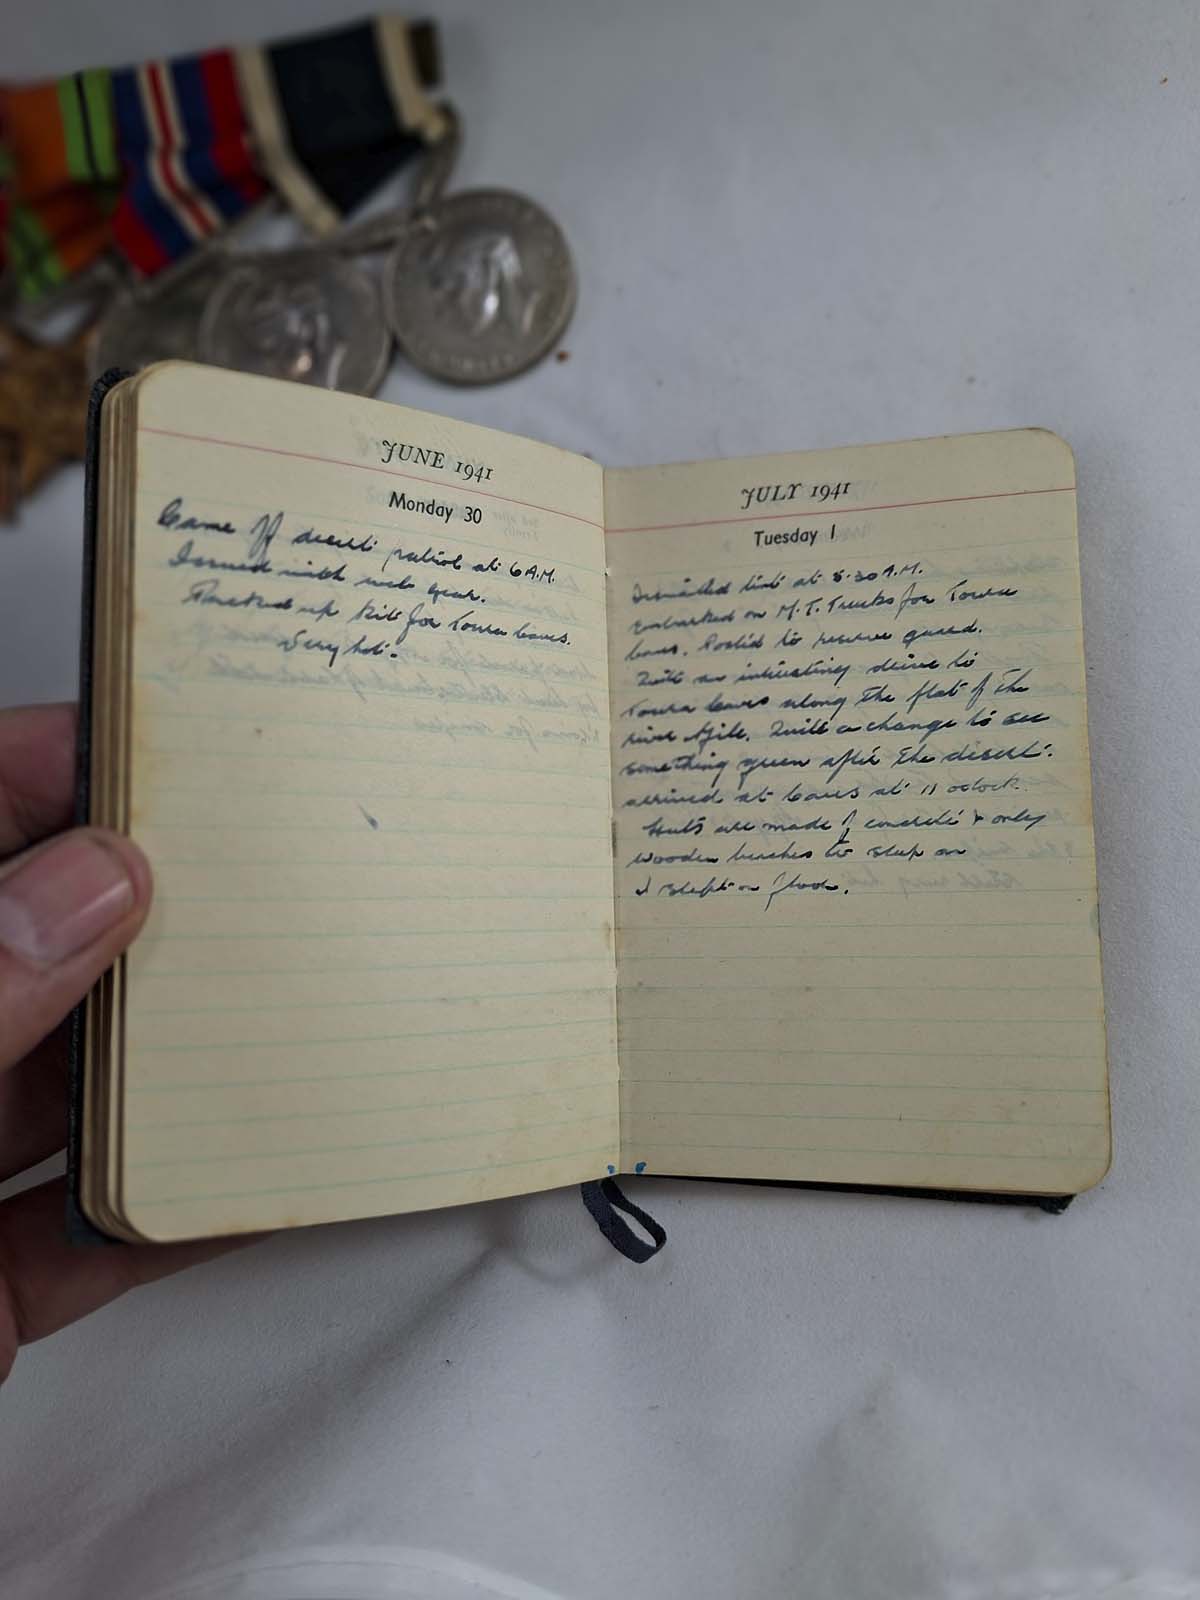 JUNE 1941
Monday 30
Came off desert patrol at 6 A.M.
Issued with web gear.
Packed up kit for Toura Caves.
Very hot.
JULY 1941
Tuesday 1
Dismantled tent at 5.30 A.M.
Embarked on M.T. Trucks for Toura
Caves. Posted to reserve guard.
Quite an interesting drive to
Toura Caves along the flat of the
river Nile. Quite a change to see
something green after the desert.
arrived at Caves at 11 oclock.
Huts are made of concrete & only
wooden benches to sleep on
I slept on floor.